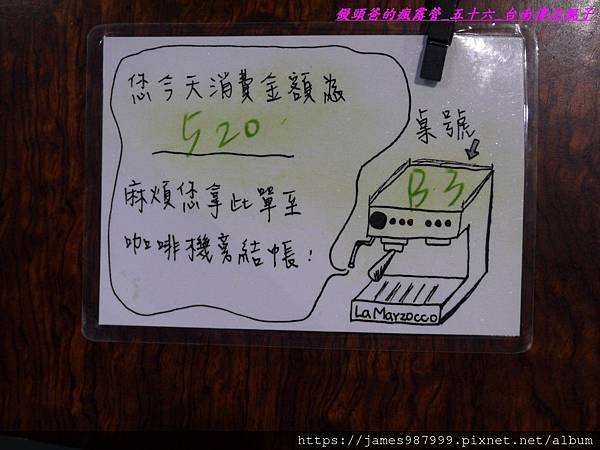 饅頭爸的瘋露營 五十六 台南
您今天消費金額為
520
麻煩您拿此單至
咖啡機旁結帳!
桌號
B3
La Marzocco
https://james987999.pixnet.net/album